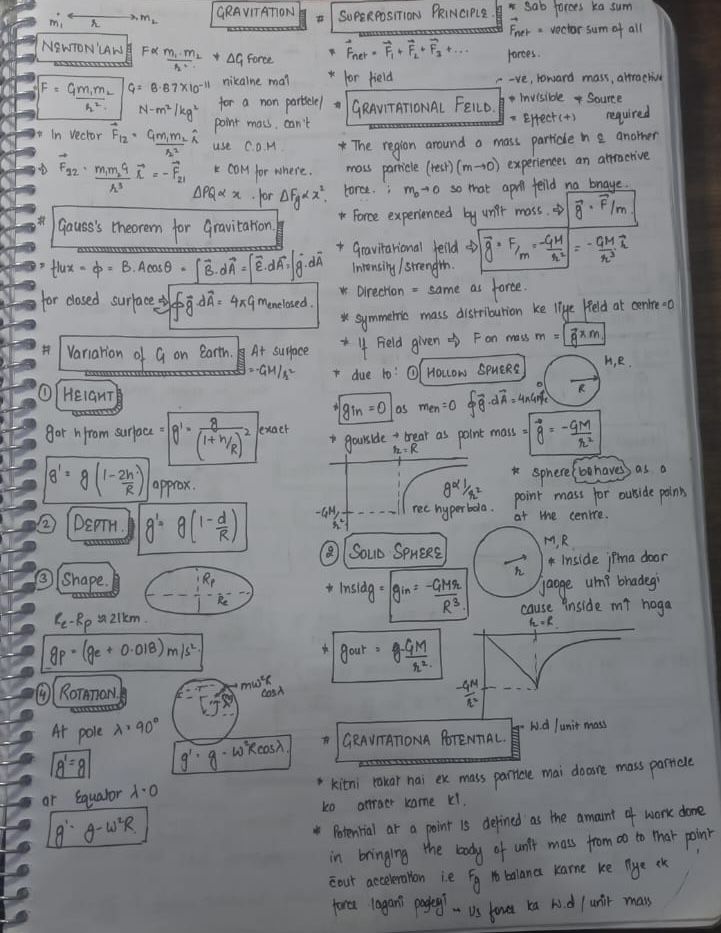 GRAVITATION
m₁ ← r → m₂
NEWTON'LAW
F ∝ m₁.m₂/r²
* ΔG Force nikalne mai for a non particle/ point mass, can't use C.O.M.
F = Gm₁m₂/r²
G = 8.87×10⁻¹¹ N-m²/kg²
* In vector F⃗₁₂ = Gm₁m₂/r² r̂
⇒ F⃗₂₂ = m₁m₂G/r³ r⃗ = -F⃗₂₁
* COM for where.
ΔPQ ∝ x . for ΔFg ∝ x².
# Gauss's theorem for Gravitation.
= flux = ϕ = B.Acosθ = ∫B⃗.dA⃗ = ∫E⃗.dA⃗ = ∫g⃗.dA⃗
for closed surface ⇒ ∮g⃗.dA⃗ = 4πG menclosed.
# Variation of G on Earth.
At surface = -GM/r²
① HEIGHT
gat h from surface = g' = g/(1+h/R)² exact
g' = g(1-2h/R) approx.
② DEPTH.
g' = g(1-d/R)
③ Shape.
Rp
Re
Re-Rp ≈ 21km.
gp = (ge + 0.018) m/s².
④ ROTATION.
mω²R cosλ
At pole λ = 90°
g' = g
g' = g - ω²Rcosλ.
at Equator λ = 0
g' = g-ω²R.
# SUPERPOSITION PRINCIPLE.
* Sab forces ka sum
F⃗net = vector sum of all forces.
* F⃗net = F⃗₁ + F⃗₂ + F⃗₃ + ...
* for field
-ve, toward mass, attractive
* GRAVITATIONAL FEILD.
* Invisible * Source
= Effect(+) required
* The region around a mass particle in c̄ another
mass particle (test) (m→0) experiences an attractive
force. ; m₀→0 so that apni feild na bnaye.
* Force experienced by unit mass. ⇒ g⃗ = F⃗/m.
* Gravitational feild Intensity/strength. ⇒ g⃗ = F/m = -GM/r² = -GM/r³ r⃗
* Direction = same as force.
* symmetric mass distribution ke liye field at centre = 0
* If Field given ⇒ F on mass m = g⃗×m.
* due to: ① HOLLOW SPHERE
M, R.
R
* gin = 0 as men=0
* goutside → treat as point mass = g⃗ = -GM/r²
r = R
-GM/r²
g∝1/r²
rec hyperbola.
* sphere behaves as a
point mass for outside points
at the centre.
② SOLID SPHERE
M, R.
r
* Inside jitna door
jaoge utni bhadegi
cause inside mi hoga
* Inside = gin = -GMr/R³.
r = R.
* gout = g-GM/r².
-GM/r²
# GRAVITATIONA POTENTIAL.
W.d/unit mass
* kitni takat hai ek mass particle mai doosre mass particle
ko attract karne ki.
* Potential at a point is defined as the amount of work done
in bringing the body of unit mass from ∞ to that point
c̄out acceleration i.e Fg ko balance karne ke liye ek
force lagani padegi → us force ka W.d/unit mass